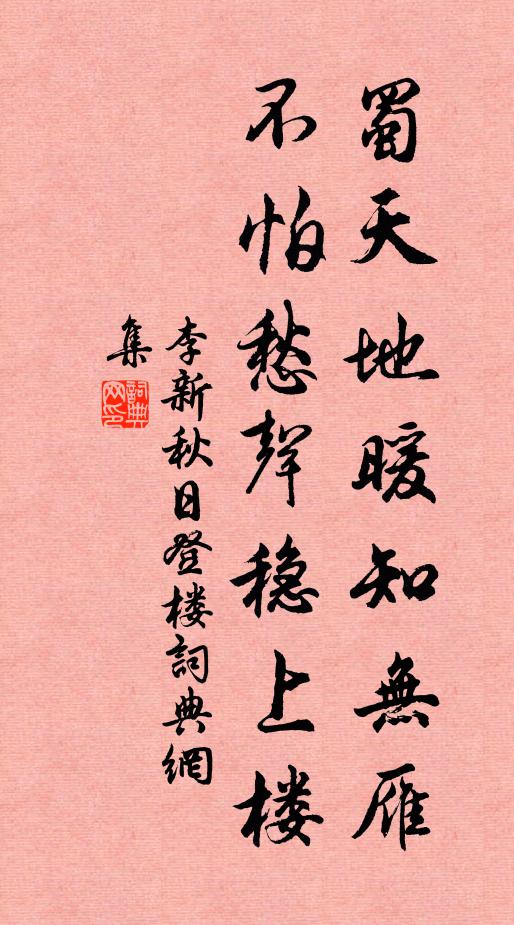 蜀天地暖知無雁
不怕愁聲稳上楼
李新秋日登楼詞典網
集
詞典网印